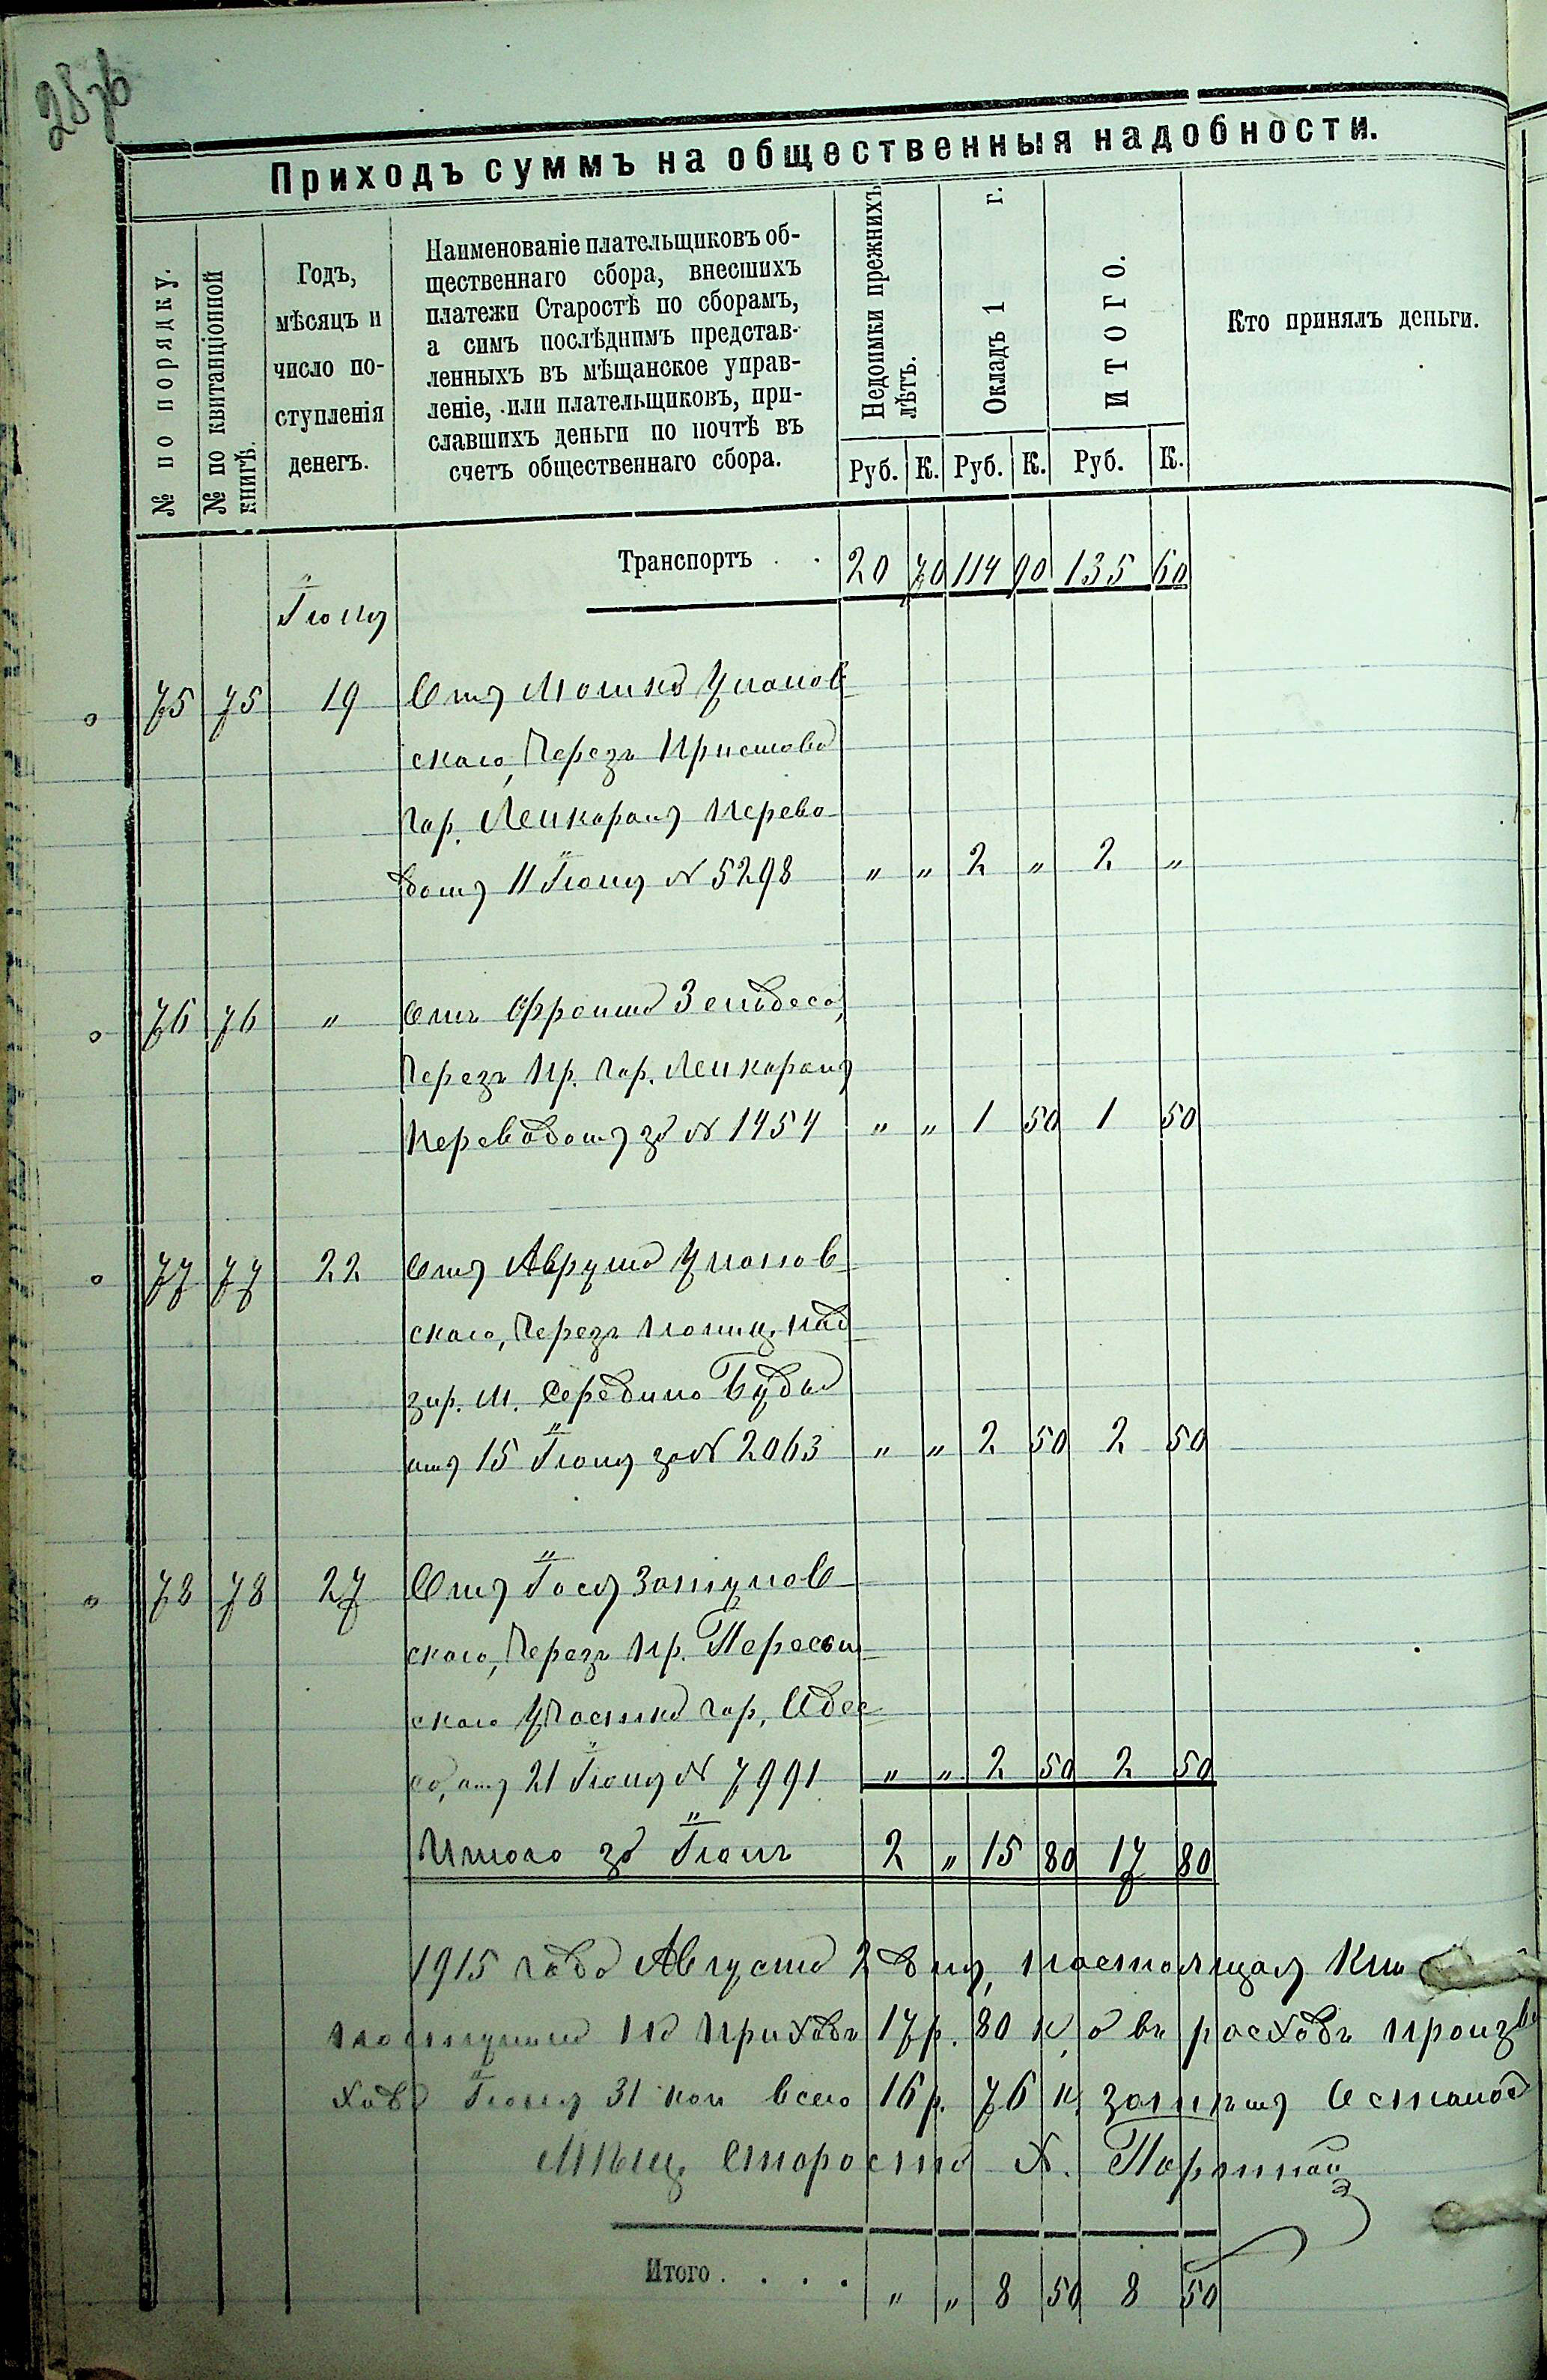 28 зв
Приходъ суммъ на общественныя надобности.
№ по порядку.
№ по квитанціонной книгѣ.
Годъ,
мѣсяцъ и
число по-
ступленія
денегъ.
Наименованіе плательщиковъ об-
щественнаго сбора, внесшихъ
платежи Старостѣ по сборамъ,
а симъ послѣднимъ представ-
ленныхъ въ мѣщанское управ-
леніе, или плательщиковъ, при-
славшихъ деньги по почтѣ въ
счетъ общественнаго сбора.
Недоимки прежнихъ лѣтъ.
Окладъ 1 г.
ИТОГО.
Кто принялъ деньги.
Руб. К. Руб. К. Руб. К.
Транспортъ . . 20 70 114 90 135 60
Іюля
75 75 19 Отъ Мошка Уланов
скаго, Черезъ Пристава
гор. Ленкорань перево
домъ 11 Іюля № 5298 " " 2 " 2 "
76 76 " Отъ Фроима
Черезъ Пр. гор. Ленкорань
Переводомъ за № 1454 " " 1 50 1 50
77 77 22 Отъ Аврума Уланов
скаго, Черезъ полиц. над
зир. м. Середино Буда
отъ 15 Іюля за № 2063 " " 2 50 2 50
78 78 27 Отъ Іося Затулов
скаго, Черезъ Пр. Пересып
скаго участка гор. Одес
са, отъ 21 Іюля № 7991 " " 2 50 2 50
Итого за Іюль 2 " 15 80 17 80
1915 года Августа 2 дня, настоящая Кни
поступило на Приходъ 17 р. 80 к, а въ расходъ произве
Іюля 31 всего 16 р. 76 к. затемъ
Мѣщ. Староста Х. Портной
Итого . . . . " " 8 50 8 50